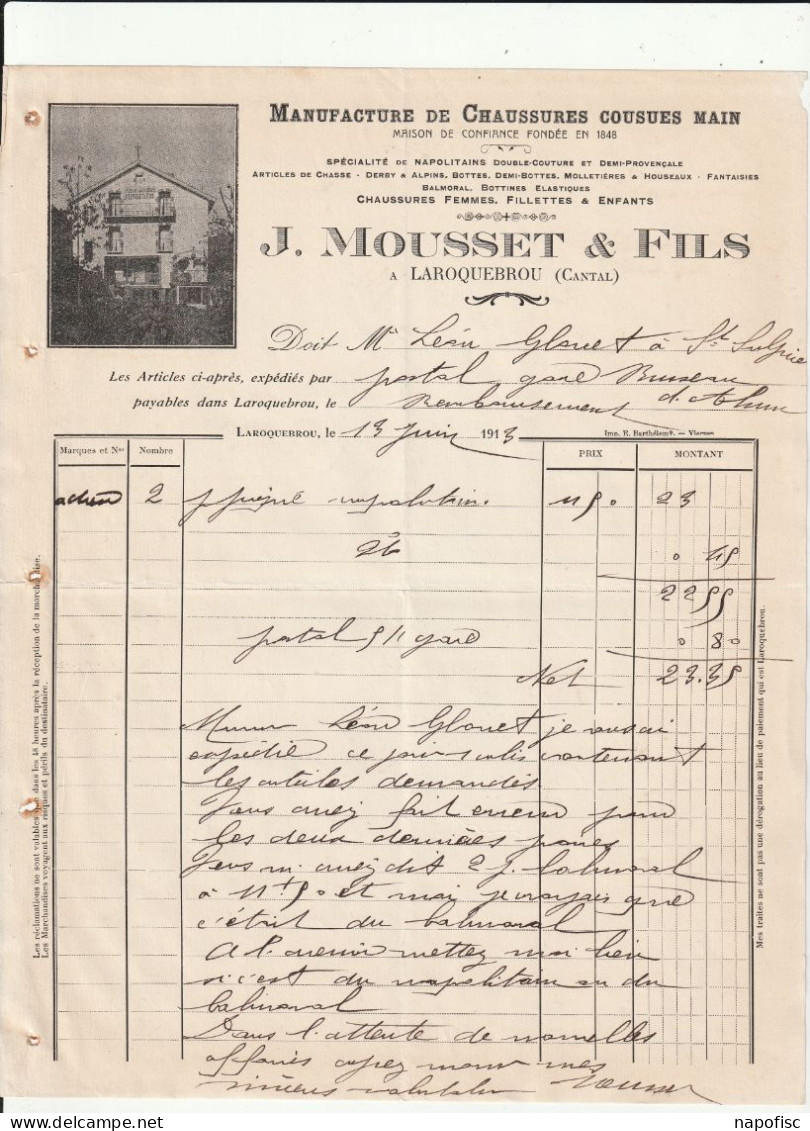 MANUFACTURE DE CHAUSSURES COUSUES MAIN
MAISON DE CONFIANCE FONDÉE EN 1848
SPÉCIALITÉ DE NAPOLITAINS DOUBLE-COUTURE ET DEMI-PROVENÇALE
ARTICLES DE CHASSE - DERBY & ALPINS, BOTTES, DEMI-BOTTES, MOLLETIÈRES & HOUSEAUX - FANTAISIES
BALMORAL, BOTTINES ELASTIQUES
CHAUSSURES FEMMES, FILLETTES & ENFANTS
J. MOUSSET & FILS
A LAROQUEBROU (CANTAL)
Doit Mr Léon Glouet à St Sulpice
Les Articles ci-après, expédiés par postal gare Busseau
payables dans Laroquebrou, le Remboursement d'Ahun
LAROQUEBROU, le 13 Juin 1913
Imp. E. Barthélemy. — Vierzon
Marques et Nos Nombre PRIX MONTANT
2 napolitain. 11 50 23
2% 0 45
22 55
postal 5 k gare 0 80
Net 23.35
Léon Glouet je vous ai
expédié ce jour colis contenant
les articles demandés
Vous avez fait erreur pour
les deux dernières paires
Vous m'avez dit 2 p. balmoral
à 11f50 et moi je voyais que
c'était du balmoral
A l'avenir mettez moi bien
si c'est du napolitain ou du
balmoral
Dans l'attente de nouvelles
affaires
sincères Mousset
Les réclamations ne sont valables que dans les 48 heures après la réception de la marchandise.
Les Marchandises voyagent aux risques et périls du destinataire.
Mes traites ne sont pas une dérogation au lieu de paiement qui est Laroquebrou.
napofisc